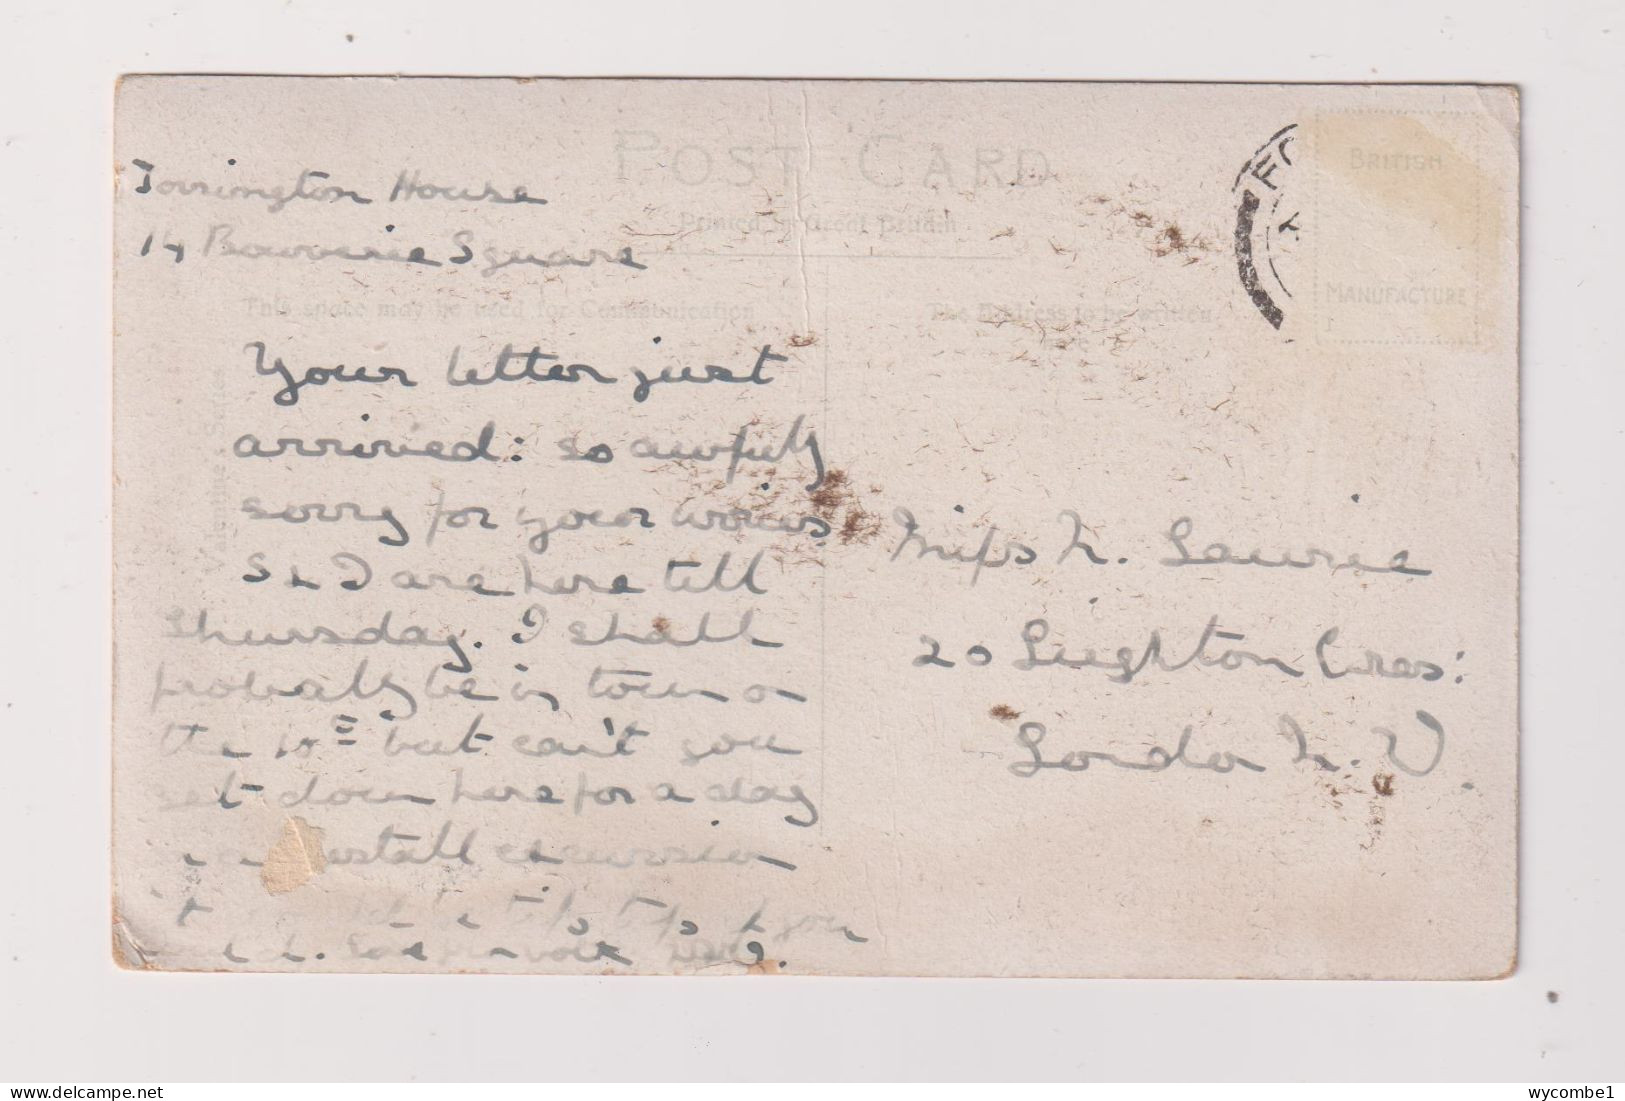 POST CARD
Printed in Great Britain
Torrington House
14 Bouverie Square
This space may be used for Communication
The Address to be written
here
BRITISH
MANUFACTURE
FO
Valentine's Series
Your letter just
arrived: so awfully
sorry for your worries.
S & I are here till
Thursday. I shall
probably be in town on
the 10th but can't you
get down here for a day
excursion
it would be tip top if you
Miss N. Laurie
20 Leighton Cres:
London N.W.
wycombe1